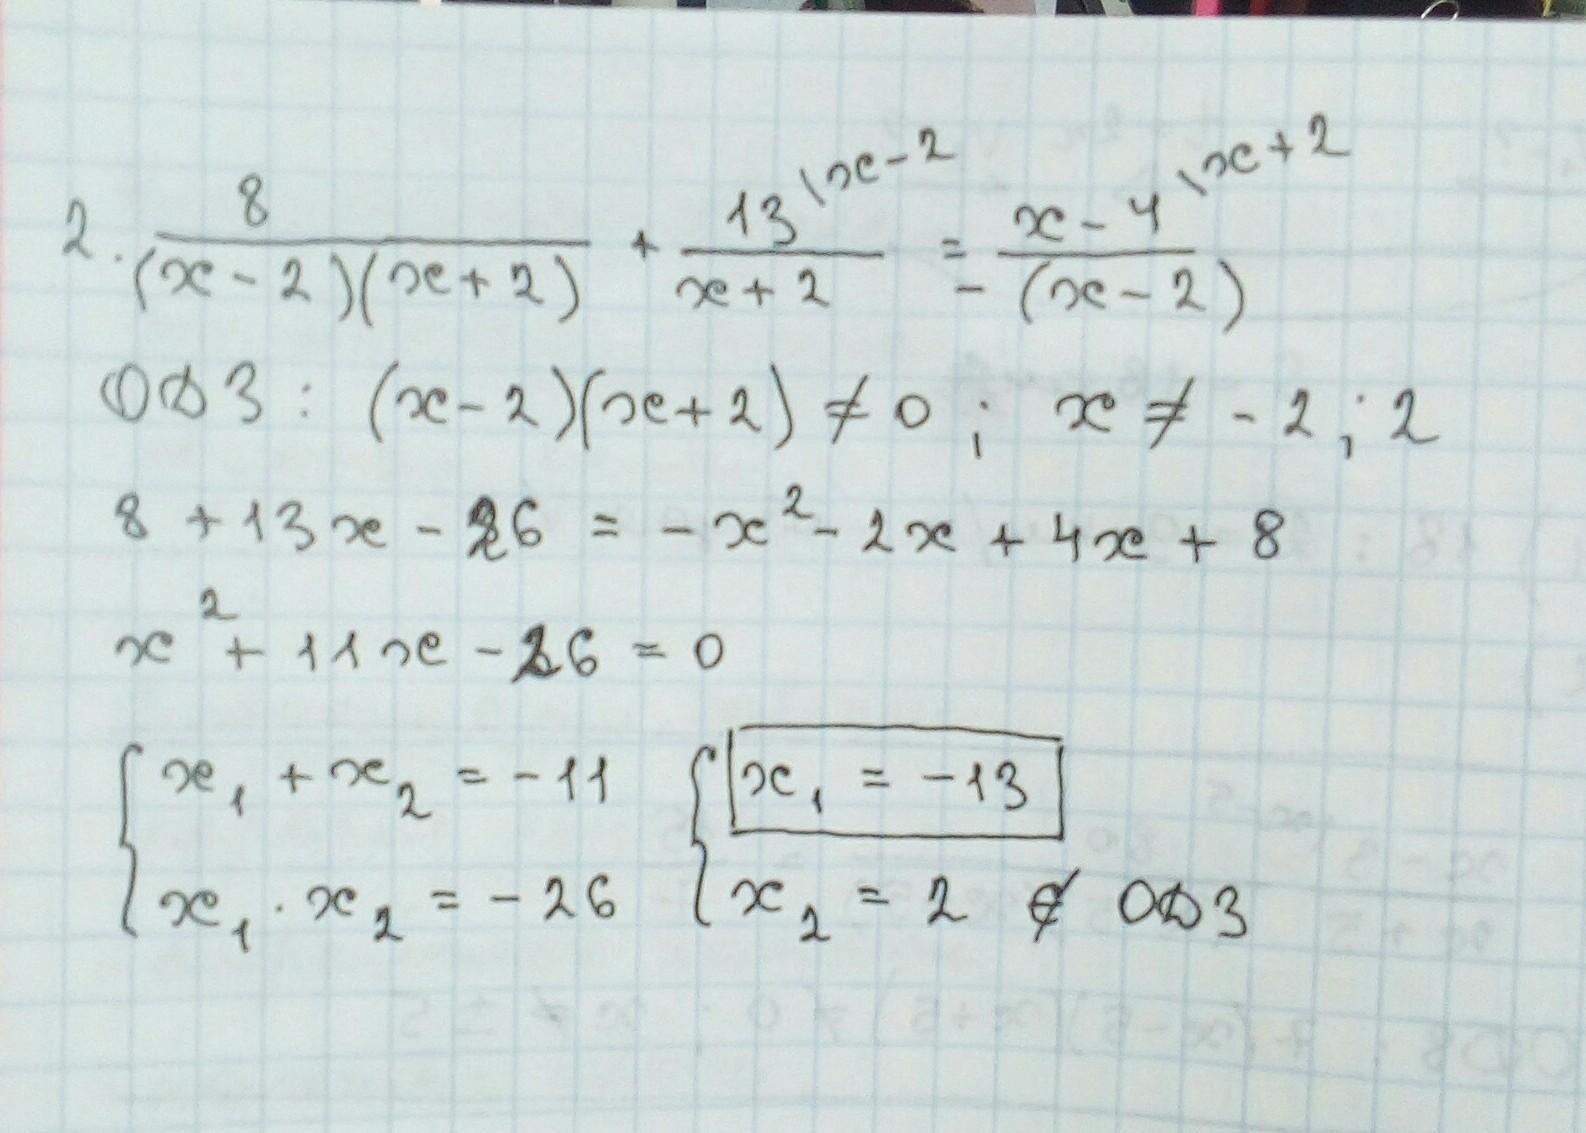 2. 8/((x-2)(x+2)) + 13\x-2/(x+2) = x-4\x+2/-(x-2)
ОДЗ: (x-2)(x+2)≠0; x≠-2; 2
8+13x-26=-x²-2x+4x+8
x²+11x-26=0
{x₁+x₂=-11 {x₁=-13
x₁·x₂=-26 x₂=2 ∉ ОДЗ